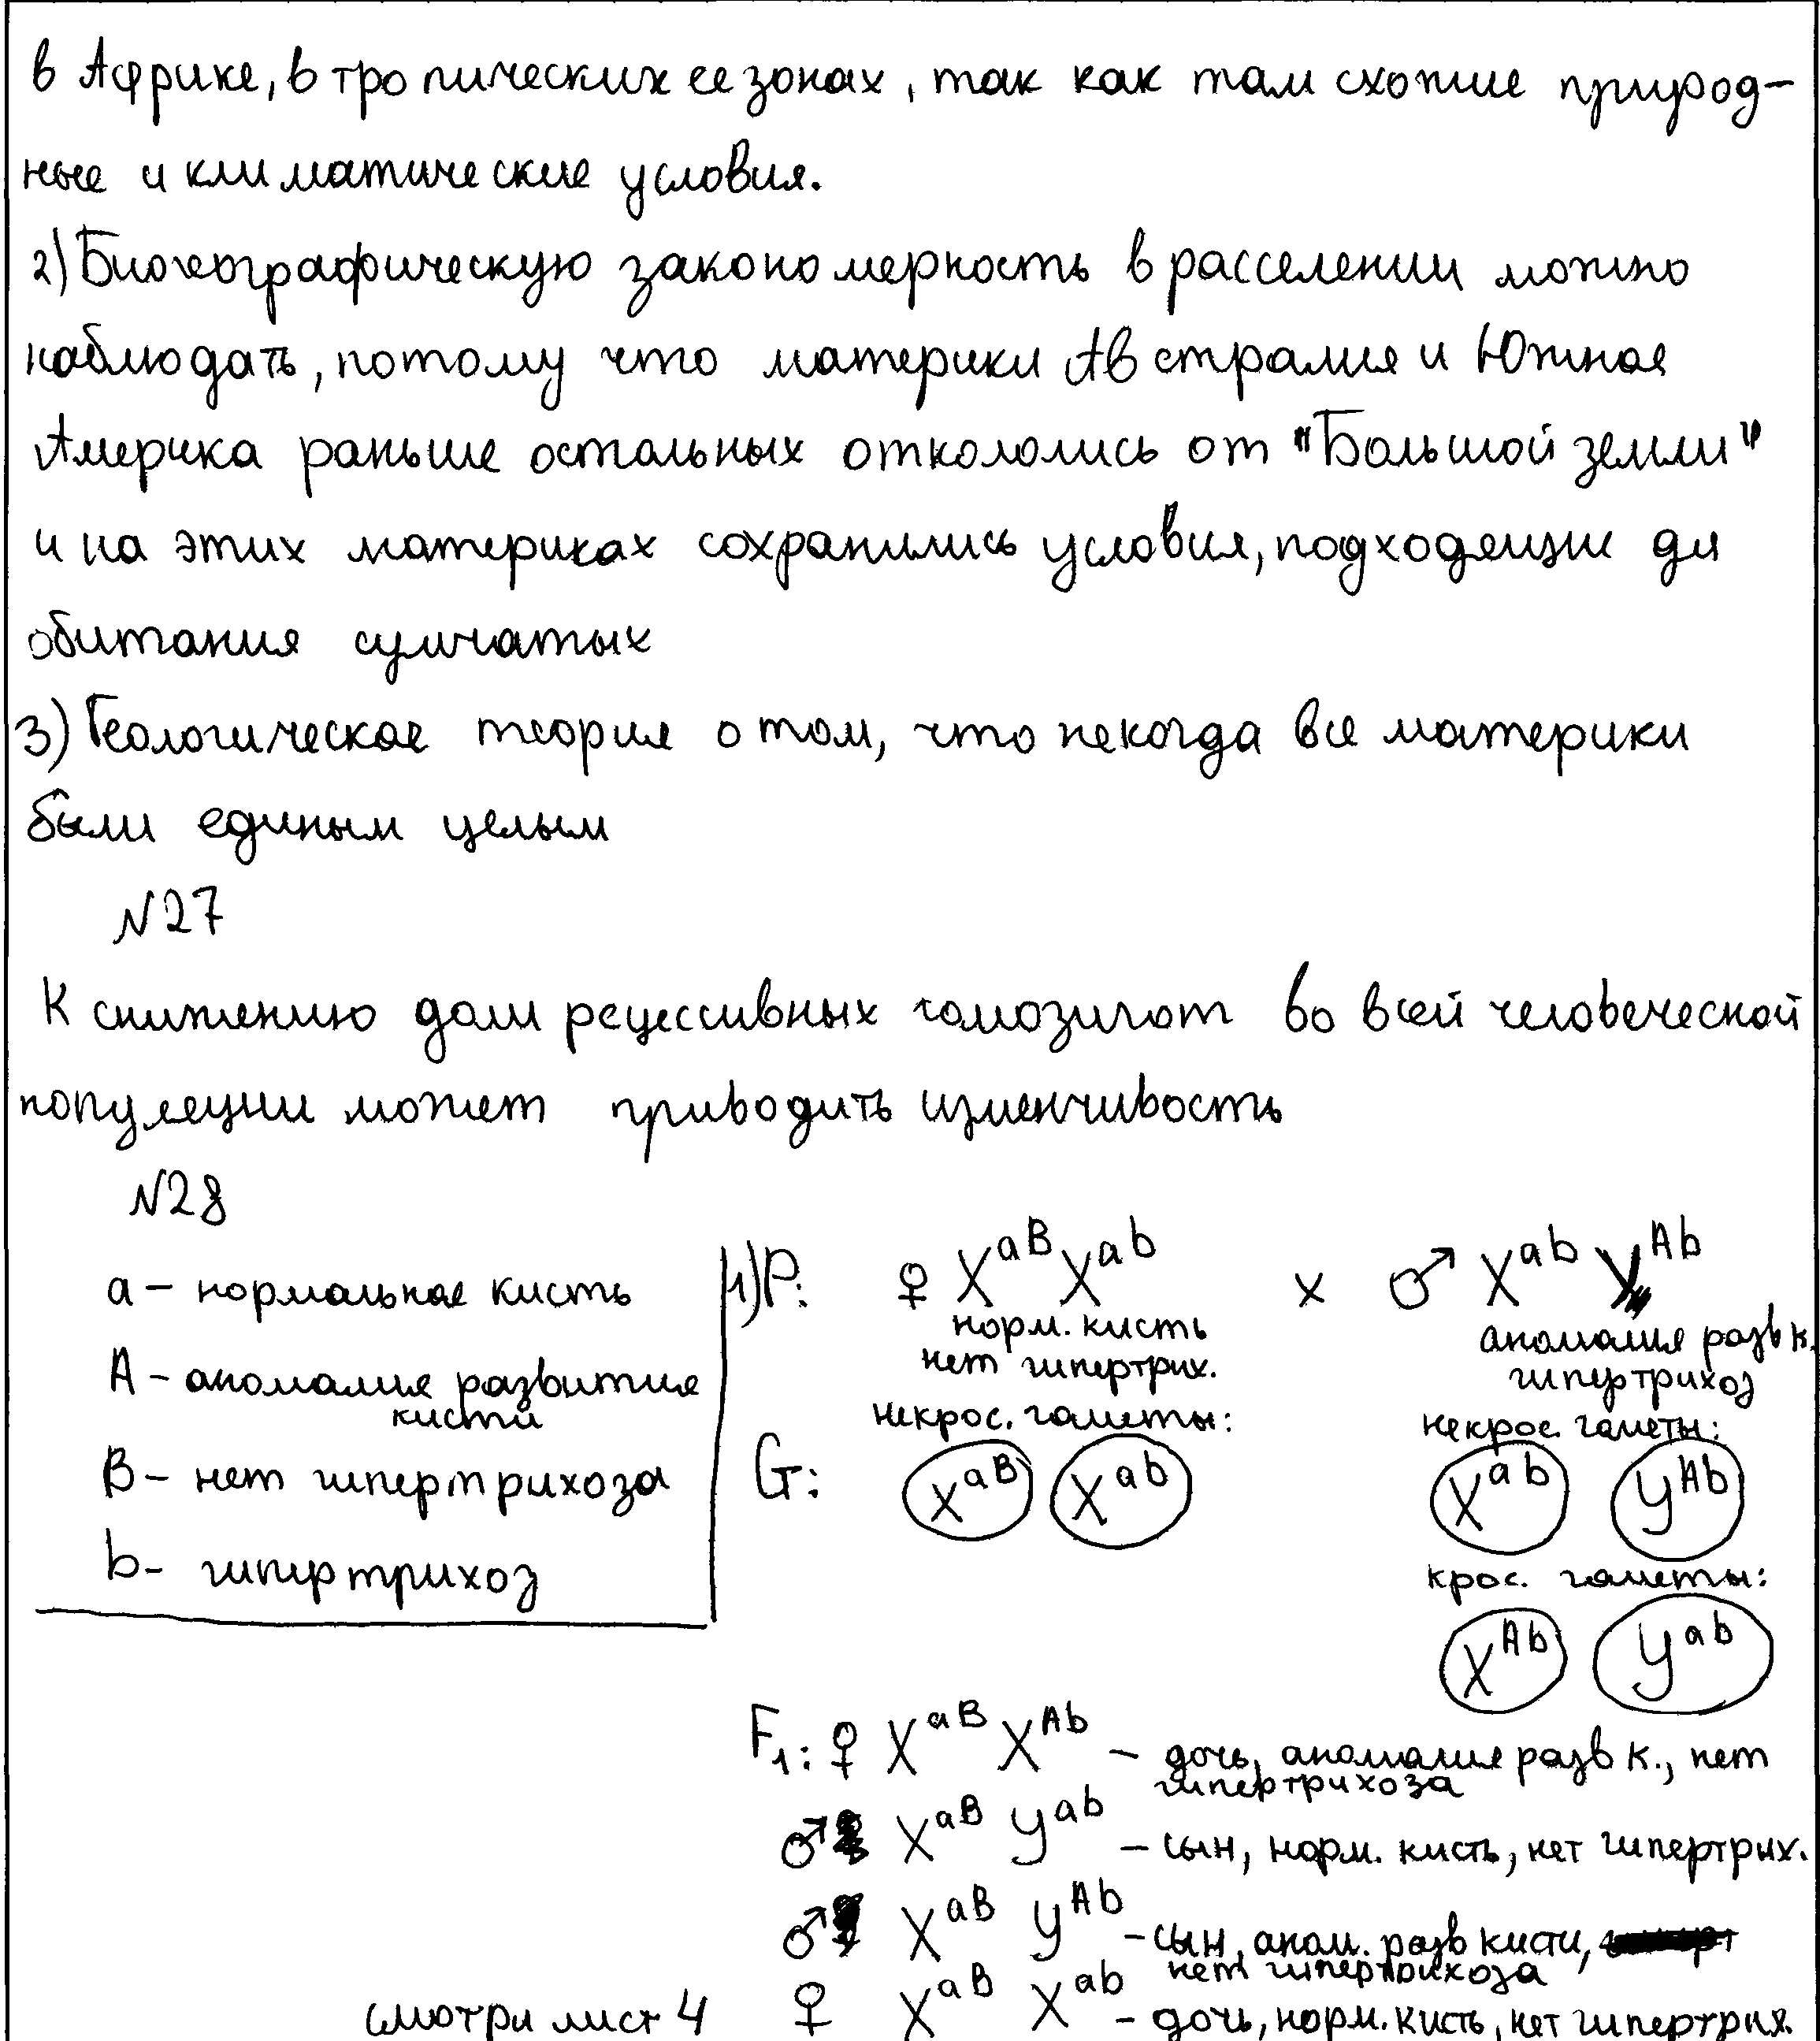 в Африке, в тропических её зонах, так как там схожие природ-
ные и климатические условия.
2) Биогеографическую закономерность в расселении можно
наблюдать, потому что материки Австралия и Южная
Америка раньше остальных откололись от "Большой земли"
и на этих материках сохранились условия, подходящие для
обитания сумчатых
3) Геологическая теория о том, что некогда все материки
были единым целым
№27
К снижению доли рецессивных гомозигот во всей человеческой
популяции может приводить изменчивость
№28
a - нормальная кисть
A - аномалия развития
кисти
B - нет гипертрихоза
b - гипертрихоз
1) P: ♀ X^aB X^ab x ♂ X^ab Y^Ab
норм. кисть аномалия разв к.
нет гипертрих. гипертрихоз
некрос. гаметы: некрос. гаметы:
G: X^aB X^ab X^ab Y^Ab
крос. гаметы:
X^Ab Y^ab
F1: ♀ X^aB X^Ab - дочь, аномалия разв к., нет
гипертрихоза
♂ X^aB Y^ab - сын, норм. кисть, нет гипертрих.
♂ X^aB Y^Ab - сын, аном. разв кисти,
нет гипертрихоза
♀ X^aB X^ab - дочь, норм. кисть, нет гипертрих.
смотри лист 4